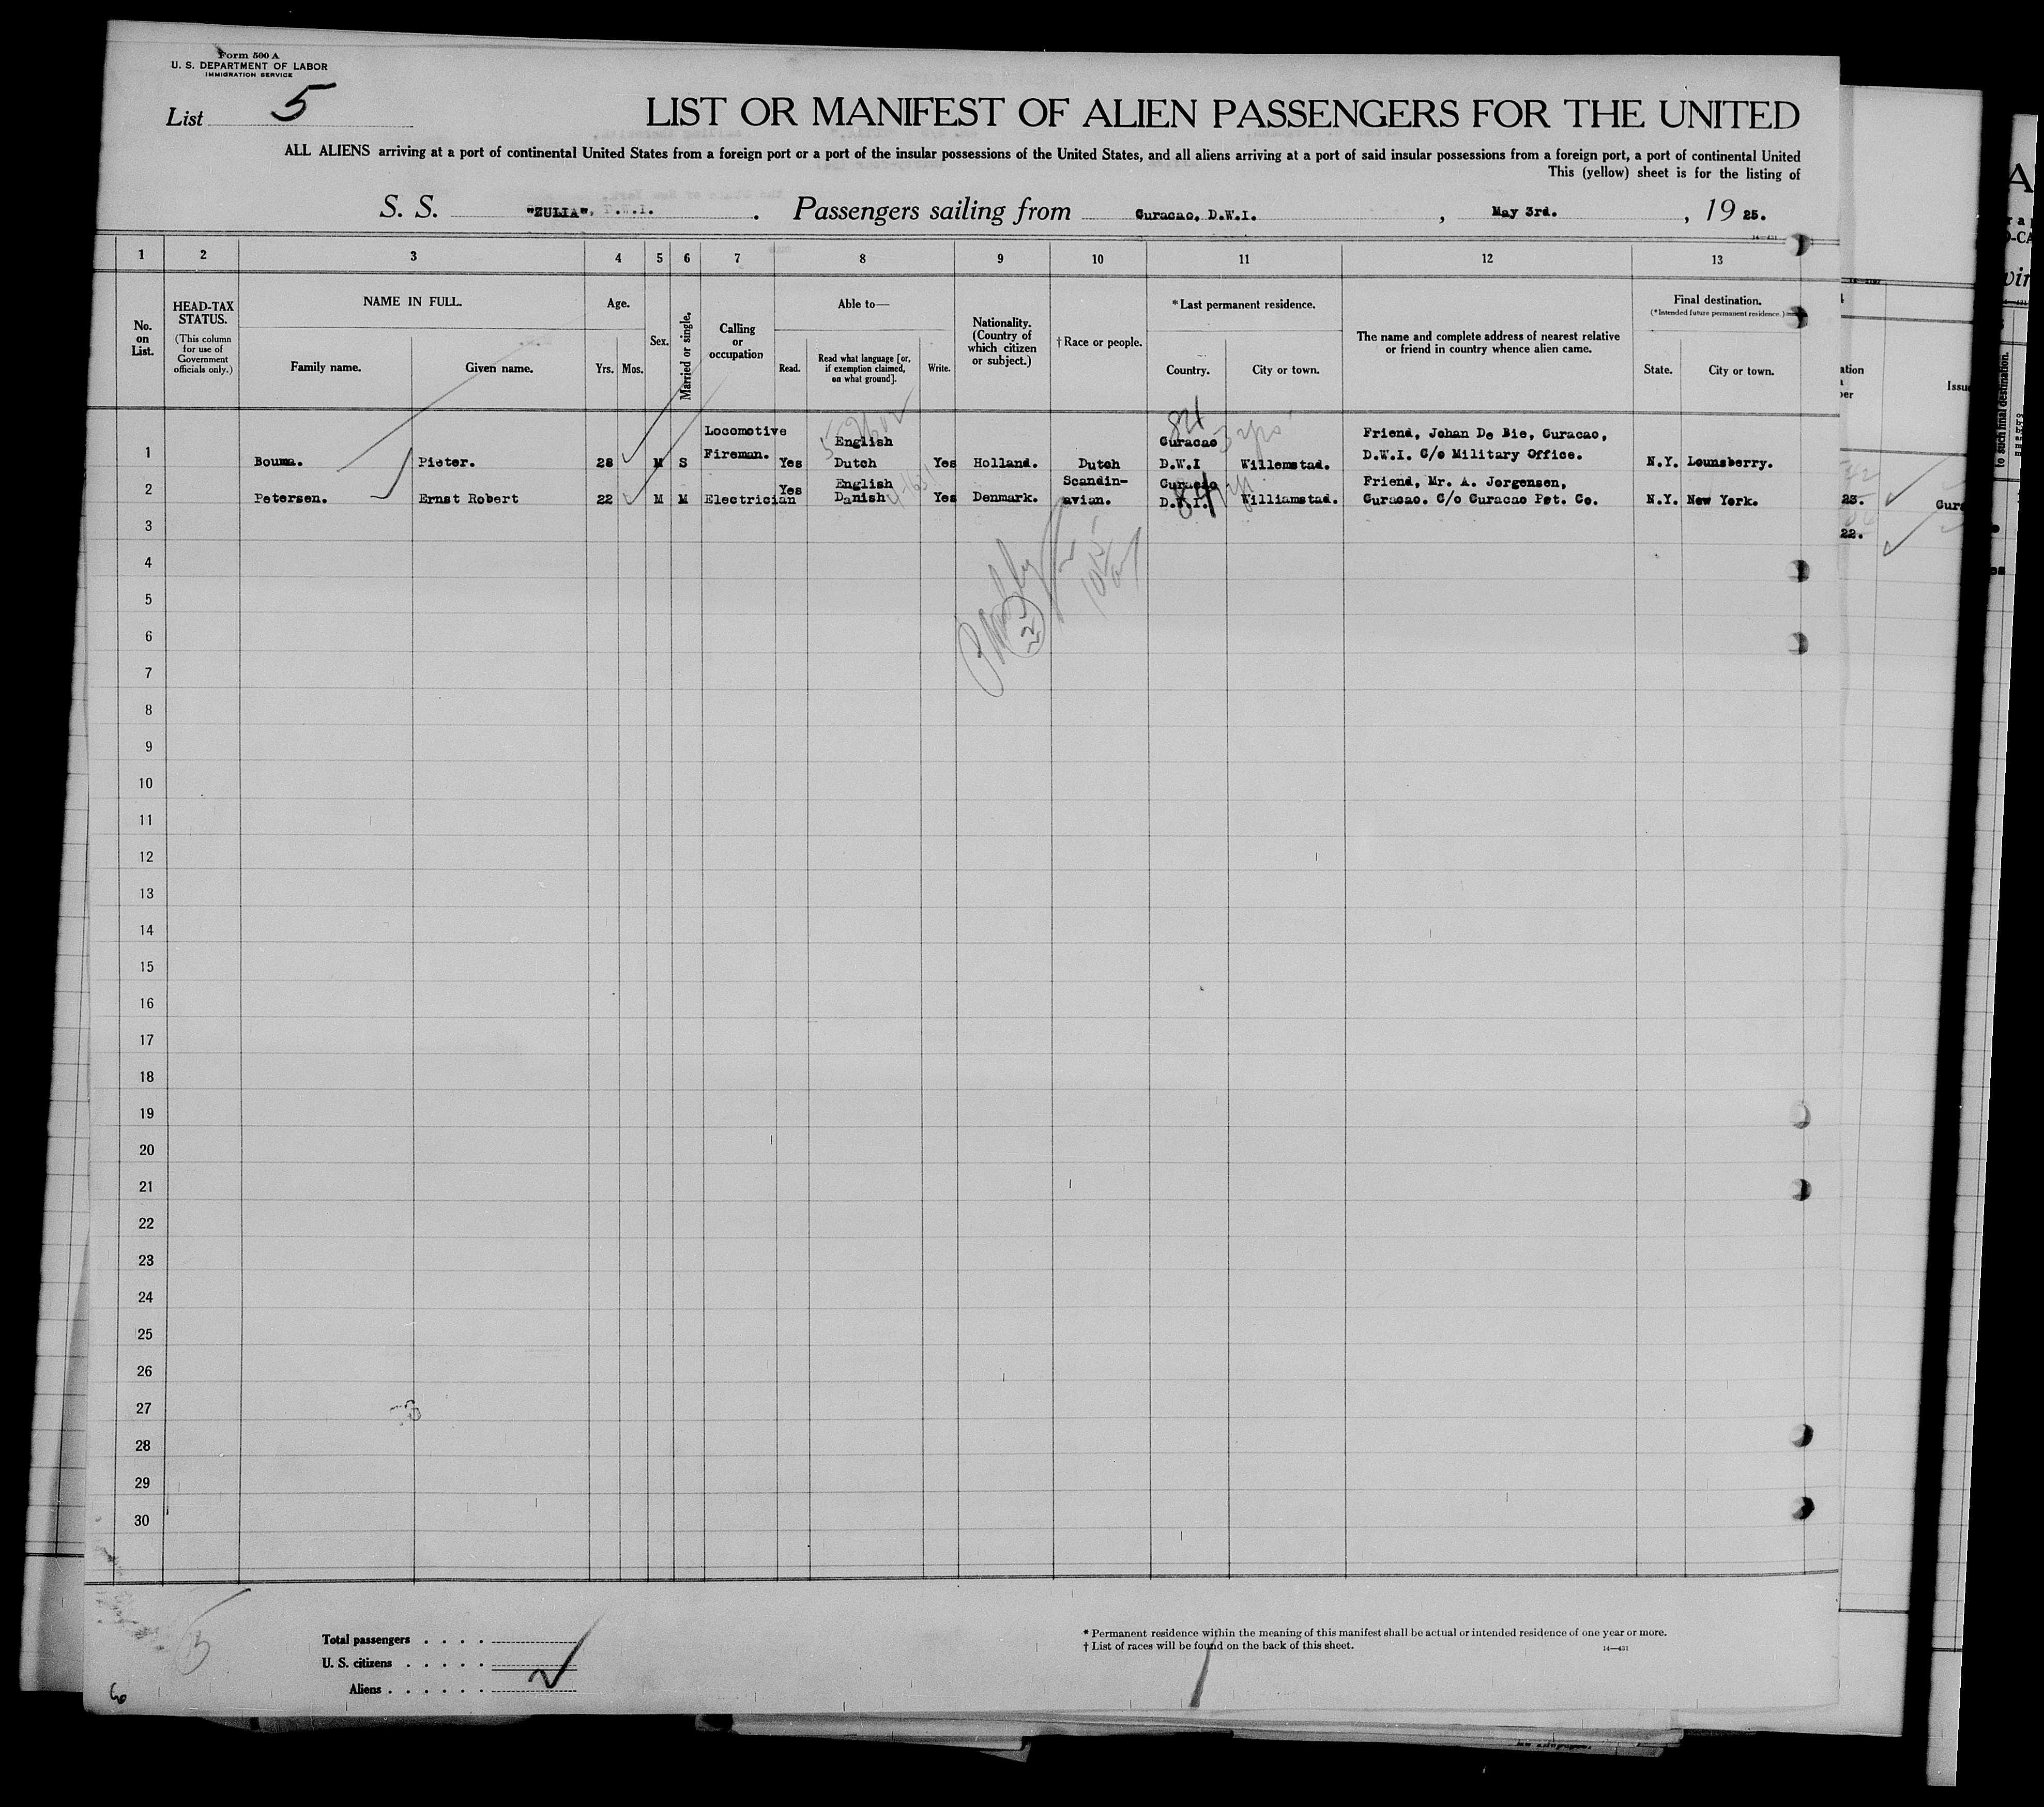 Form 500 A
U. S. DEPARTMENT OF LABOR
IMMIGRATION SERVICE
List 5
LIST OR MANIFEST OF ALIEN PASSENGERS FOR THE UNITED
ALL ALIENS arriving at a port of continental United States from a foreign port or a port of the insular possessions of the United States, and all aliens arriving at a port of said insular possessions from a foreign port, a port of continental United
This (yellow) sheet is for the listing of
S. S. "ZULIA", . Passengers sailing from Curacao, D.W.I. , May 3rd. , 19 25.
14—431
1 2 3 4 5 6 7 8 9 10 11 12 13
No. on List.
HEAD-TAX STATUS.
(This column for use of Government officials only.)
NAME IN FULL.
Family name. Given name.
Age.
Yrs. Mos.
Sex.
Married or single.
Calling or occupation
Able to—
Read. Read what language [or, if exemption claimed, on what ground]. Write.
Nationality. (Country of which citizen or subject.)
† Race or people.
*Last permanent residence.
Country. City or town.
The name and complete address of nearest relative or friend in country whence alien came.
Final destination.
(*Intended future permanent residence.)
State. City or town.
1 Bouma. Pieter. 28 M S Locomotive Fireman. Yes English Dutch Yes Holland. Dutch Curacao D.W.I Willemstad. Friend, Johan De Bie, Curacao, D.W.I. C/o Military Office. N.Y. Lounsberry.
2 Petersen. Ernst Robert 22 M M Electrician Yes English Danish Yes Denmark. Scandin-avian. Curacao D.W.I. Williamstad. Friend, Mr. A. Jorgensen, Curacao. C/o Curacao Pet. Co. N.Y. New York.
3
4
5
6
7
8
9
10
11
12
13
14
15
16
17
18
19
20
21
22
23
24
25
26
27
28
29
30
Total passengers . . . .
U. S. citizens . . . . .
Aliens . . . . . .
* Permanent residence within the meaning of this manifest shall be actual or intended residence of one year or more.
† List of races will be found on the back of this sheet.
14—431